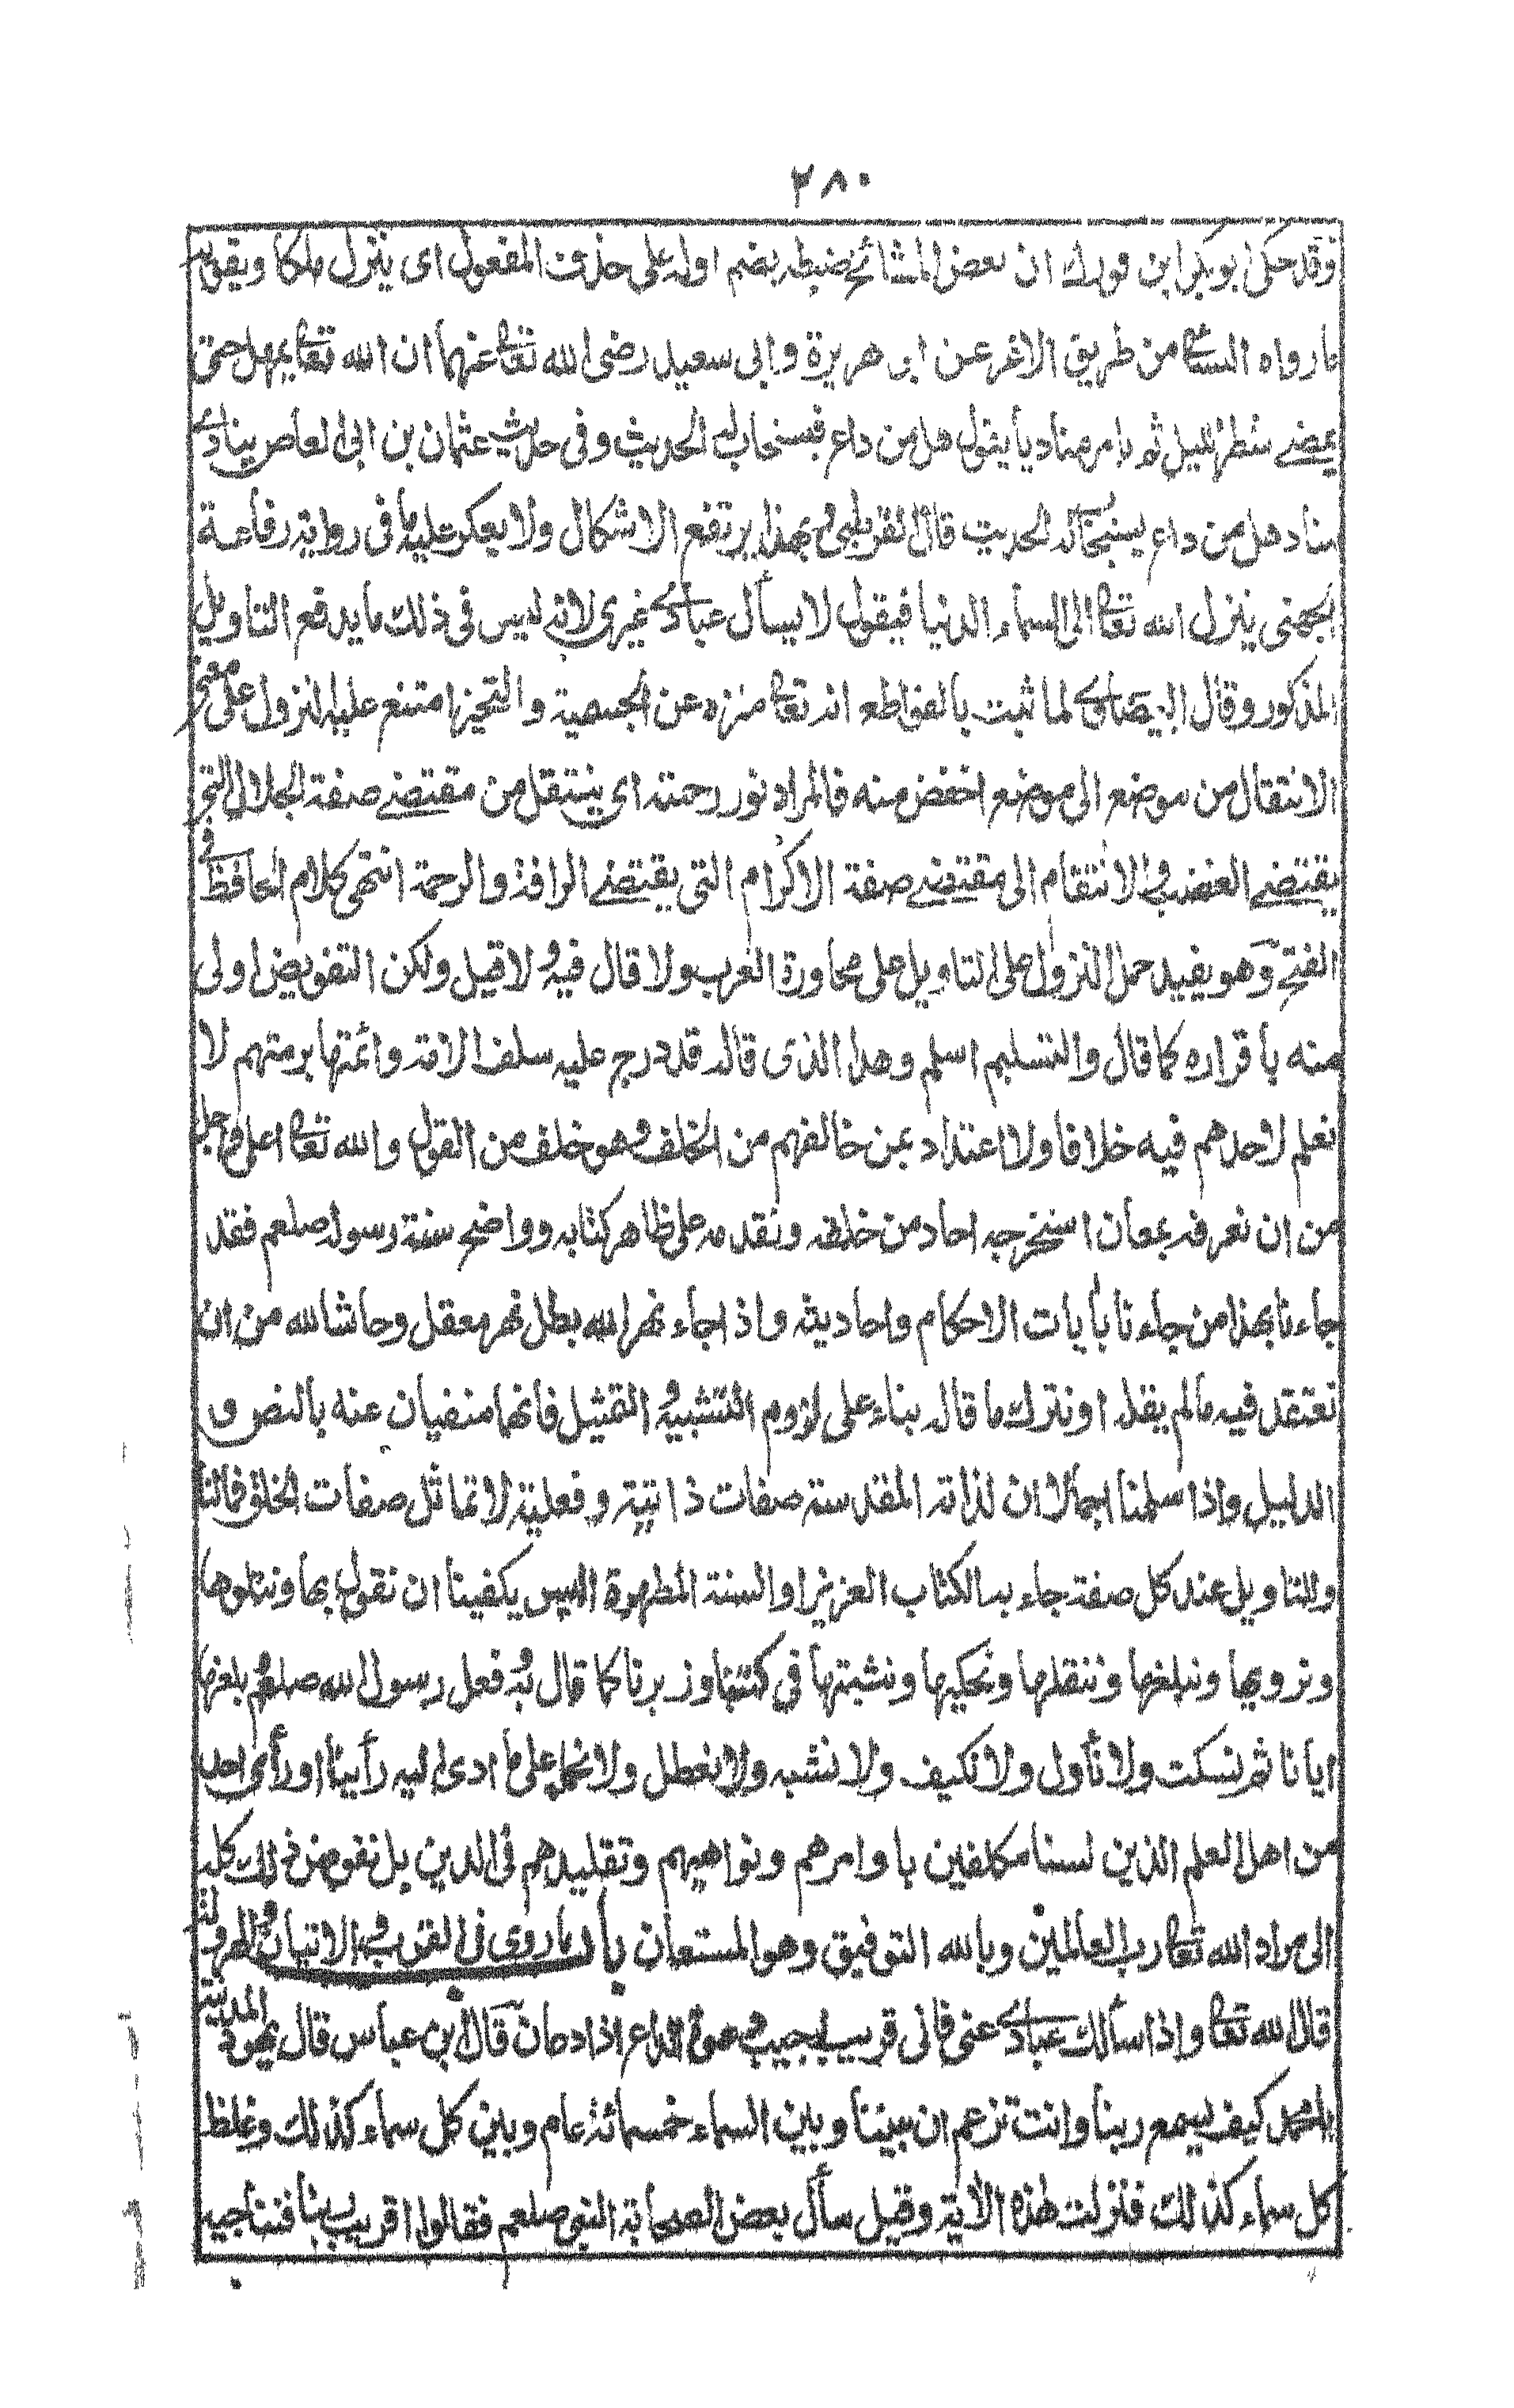 ٢٨٠
وقد حكى ابو بكر ابن فورك ان بعض المشائخ ضبطه بضم اوله على حذف المفعول اى ينزل ملكا ويقويه
ما رواه النسائى من طريق الاغر عن ابى هريرة وابى سعيد رضى الله تعا عنهما ان الله تعا يمهل حتى
يمضے شطر الليل ثم يامر مناديا يقول هل من داع فيستجاب له الحديث وفى حديث عثمان بن ابى العاص ينادے
مناد هل من داع يستجاب له الحديث قال القرطبى وبهذا يرتفع الاشكال ولا يعكر عليه ما فى رواية رفاعة
الجهنى ينزل الله تعا الى السماء الدنيا فيقول لا يسأل عبادے غيرى لانه ليس فى ذلك ما يدفع التاويل
المذكور وقال البيضاوى لما ثبت بالقواطع انه تعا منزه عن الجسمية والتحيز امتنع عليه النزول على معنى
الانتقال من موضع الى موضع اخفض منه فالمراد نور رحمته اى ينتقل من مقتضے صفة الجلال التى
يقتضے الغضب والانتقام الى مقتضے صفة الاكرام التى يقتضے الرافة والرحمة انتهى كلام الحافظ فى
الفتح وهو يفيد حمل النزول على التاويل على محاورة العرب ولا قال فيه ولا قيل ولكن التفويض اولى
منه باقراره كما قال والتسليم اسلم وهذا الذى قاله قد درج عليه سلف الامة وائمتها برمتهم لا
نعلم لاحدهم فيه خلافا ولا اعتداد بمن خالفهم من الخلف وهو خلف من القول والله تعا اعلى واجل
من ان نعرفه بمعان استخرجه احاد من خلقه ونقدمه على ظاهر كتابه وواضح سنة رسوله صلعم فقد
جاءنا بهذا من جاءنا بايات الاحكام واحاديثه واذا جاء نهر الله بطل نهر معقل وحاشا لله من ان
نعتقد فيه ما لم يقله او نترك ما قاله بناء على لزوم التشبيه و التمثيل فانهما منفيان عنه بالنص و
الدليل واذا سلمنا اجمالا ان لذاته المقدسة صفات ذاتية وفعلية لا تماثل صفات الخلق فما لنا
وللتاويل عند كل صفة جاء بها الكتاب العزيز او السنة المطهرة اليس يكفينا ان نقول بها ونتلوها
ونرويها ونبلغها وننقلها ونحكيها ونثبتها فى كتبنا وزبرنا كما قال به وفعل رسول الله صلعم وبلغها
ايانا ثم نسكت ولا نأول ولا نكيف ولا نشبه ولا نعطل ولا نحمله على ما ادى اليه رأينا او رأى احد
من اهل العلم الذين لسنا مكلفين باوامرهم ونواهيهم وتقليدهم فى الدين بل نفوض ذلك كله
الى مراد الله تعا رب العالمين وبالله التوفيق وهو المستعان باب ما روى فى القرب والاتيان والهرولة
قال الله تعا واذا سألك عبادے عنى فانى قريب اجيب دعوة الداع اذا دعان قال ابن عباس قال يهود المدينة
يا محمد كيف يسمع ربنا وانت تزعم ان بيننا وبين السماء خمسمائة عام وبين كل سماء كذلك وغلظ
كل سماء كذلك فنزلت هذه الأية وقيل سأل بعض الصحابة النبى صلعم فقالوا اقريب ربنا فنناجيه